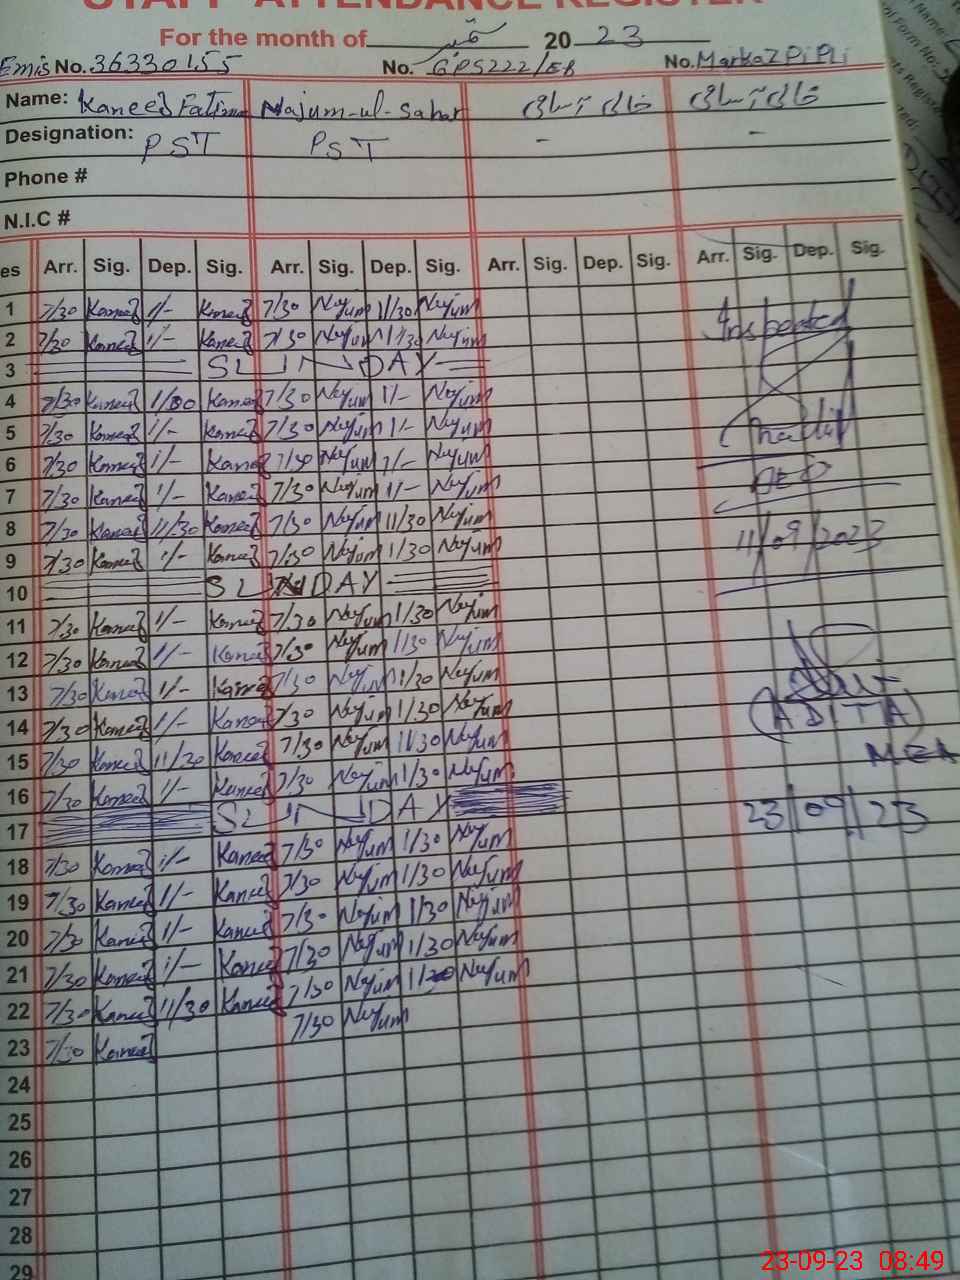 STAFF ATTENDANCE REGISTER
For the month of ستمبر 2023
Emis No. 36330155 No. GPS222/EB No. Markaz PiPli
Name: Kaneez Fatima Najum-ul-Sahar خالی آسامی خالی آسامی
Designation: PST PST - -
Phone #
N.I.C #
es Arr. Sig. Dep. Sig. Arr. Sig. Dep. Sig. Arr. Sig. Dep. Sig. Arr. Sig. Dep. Sig.
1 7/30 Kaneez 1/- Kaneez 7/30 Najum 11/30 Najum
2 7/30 Kaneez 1/- Kaneez 7/30 Najum 11/30 Najum Inspected
3 SUNDAY
4 7/30 Kaneez 1/30 Kaneez 7/30 Najum 1/- Najum
5 7/30 Kaneez 1/- Kaneez 7/30 Najum 1/- Najum
6 7/30 Kaneez 1/- Kaneez 7/30 Najum 1/- Najum
7 7/30 Kaneez 1/- Kaneez 7/30 Najum 1/- Najum
8 7/30 Kaneez 11/30 Kaneez 7/30 Najum 11/30 Najum 11/09/2023
9 7/30 Kaneez 1/- Kaneez 7/30 Najum 1/30 Najum
10 SUNDAY
11 7/30 Kaneez 1/- Kaneez 7/30 Najum 1/30 Najum
12 7/30 Kaneez 1/- Kaneez 7/30 Najum 1/30 Najum
13 7/30 Kaneez 1/- Kaneez 7/30 Najum 1/30 Najum
14 7/30 Kaneez 1/- Kaneez 7/30 Najum 1/30 Najum
15 7/30 Kaneez 11/30 Kaneez 7/30 Najum 11/30 Najum MEA
16 7/30 Kaneez 1/- Kaneez 7/30 Najum 1/30 Najum
17 SUNDAY 23/09/23
18 7/30 Kaneez 1/- Kaneez 7/30 Najum 1/30 Najum
19 7/30 Kaneez 1/- Kaneez 7/30 Najum 1/30 Najum
20 7/30 Kaneez 1/- Kaneez 7/30 Najum 1/30 Najum
21 7/30 Kaneez 1/- Kaneez 7/30 Najum 1/30 Najum
22 7/30 Kaneez 11/30 Kaneez 7/30 Najum 11/30 Najum
23 7/30 Kaneez 7/30 Najum
24
25
26
27
28
29
23-09-23 08:49